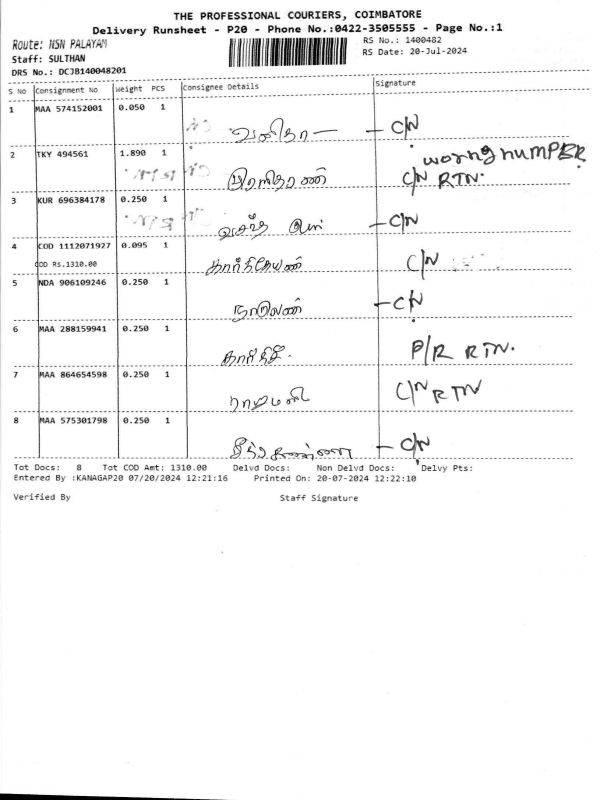 THE PROFESSIONAL COURIERS, COIMBATORE
Delivery Runsheet - P20 - Phone No.:0422-3505555 - Page No.:1
Route: NSN PALAYAM
RS No.: 1400482
Staff: SULTHAN
RS Date: 20-Jul-2024
DRS No.: DCJB140048201
S No Consignment No Weight PCS Consignee Details Signature
1 MAA 574152001 0.050 1
வனிதா - C/N
2 TKY 494561 1.890 1
worng numPER
C/N RTN.
3 KUR 696384178 0.250 1
- C/N
4 COD 1112071927 0.095 1
COD RS.1310.00 கார்த்திகேயன் C/N
5 NDA 906109246 0.250 1
- C/N
6 MAA 288159941 0.250 1
P/R RTN.
7 MAA 864654598 0.250 1
C/N RTN
8 MAA 575301798 0.250 1
- C/N
Tot Docs: 8 Tot COD Amt: 1310.00 Delvd Docs: Non Delvd Docs: Delvy Pts:
Entered By :KANAGAP20 07/20/2024 12:21:16 Printed On: 20-07-2024 12:22:10
Verified By Staff Signature